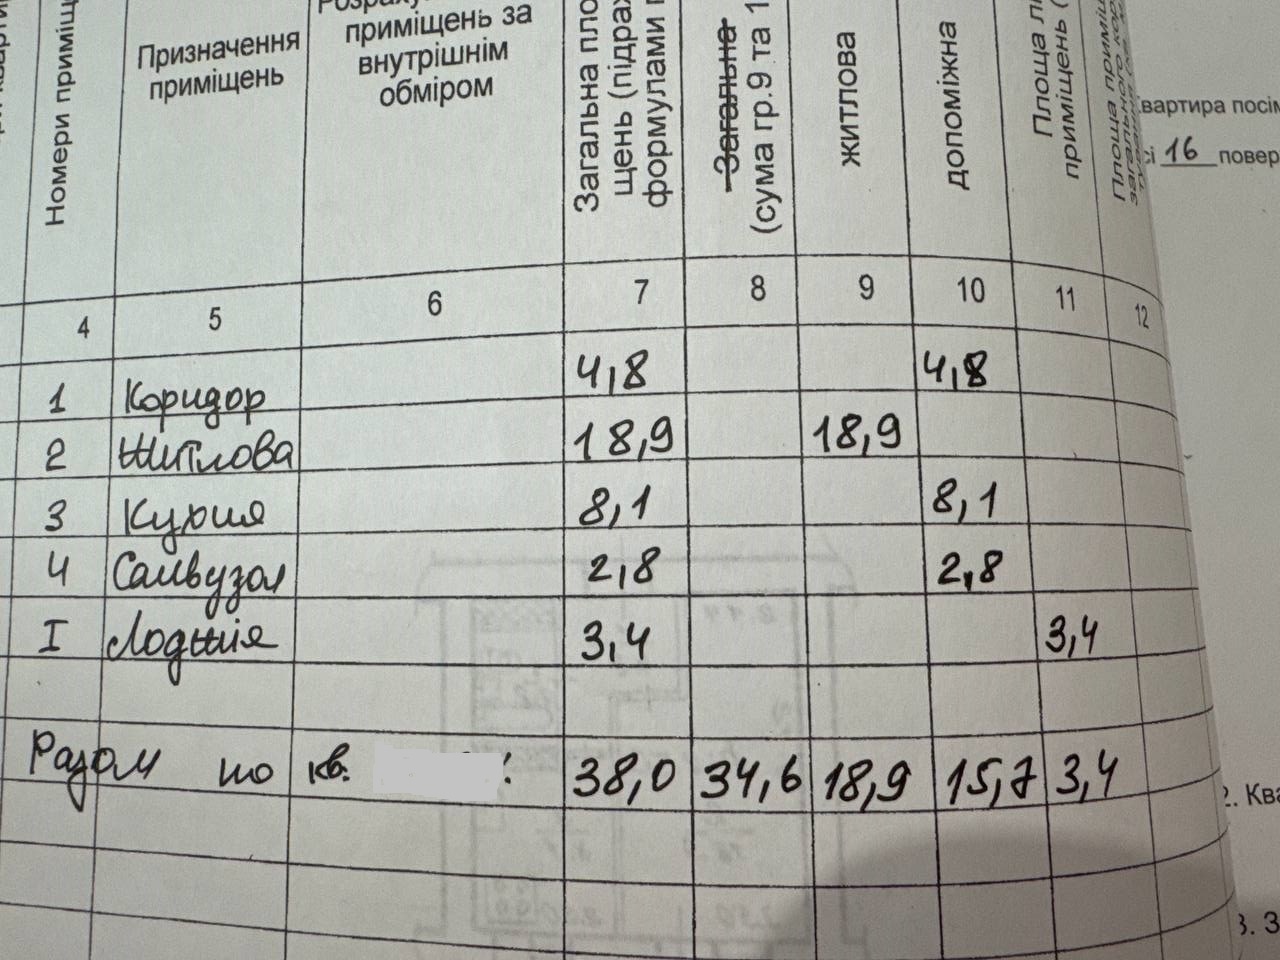 Номери приміщ
Призначення
приміщень
приміщень за
внутрішнім
обміром
Загальна пло
щень (підрах
формулами
Загальна
(сума гр.9 та 1
житлова
допоміжна
Площа
приміщень (
Площа приміщ
вартира посім
16 повер
4 5 6 7 8 9 10 11 12
1 Коридор 4,8 4,8
2 Житлова 18,9 18,9
3 Кухня 8,1 8,1
4 Санвузол 2,8 2,8
I Лоджія 3,4 3,4
Разом по кв. 38,0 34,6 18,9 15,7 3,4
2. Ква
3. З